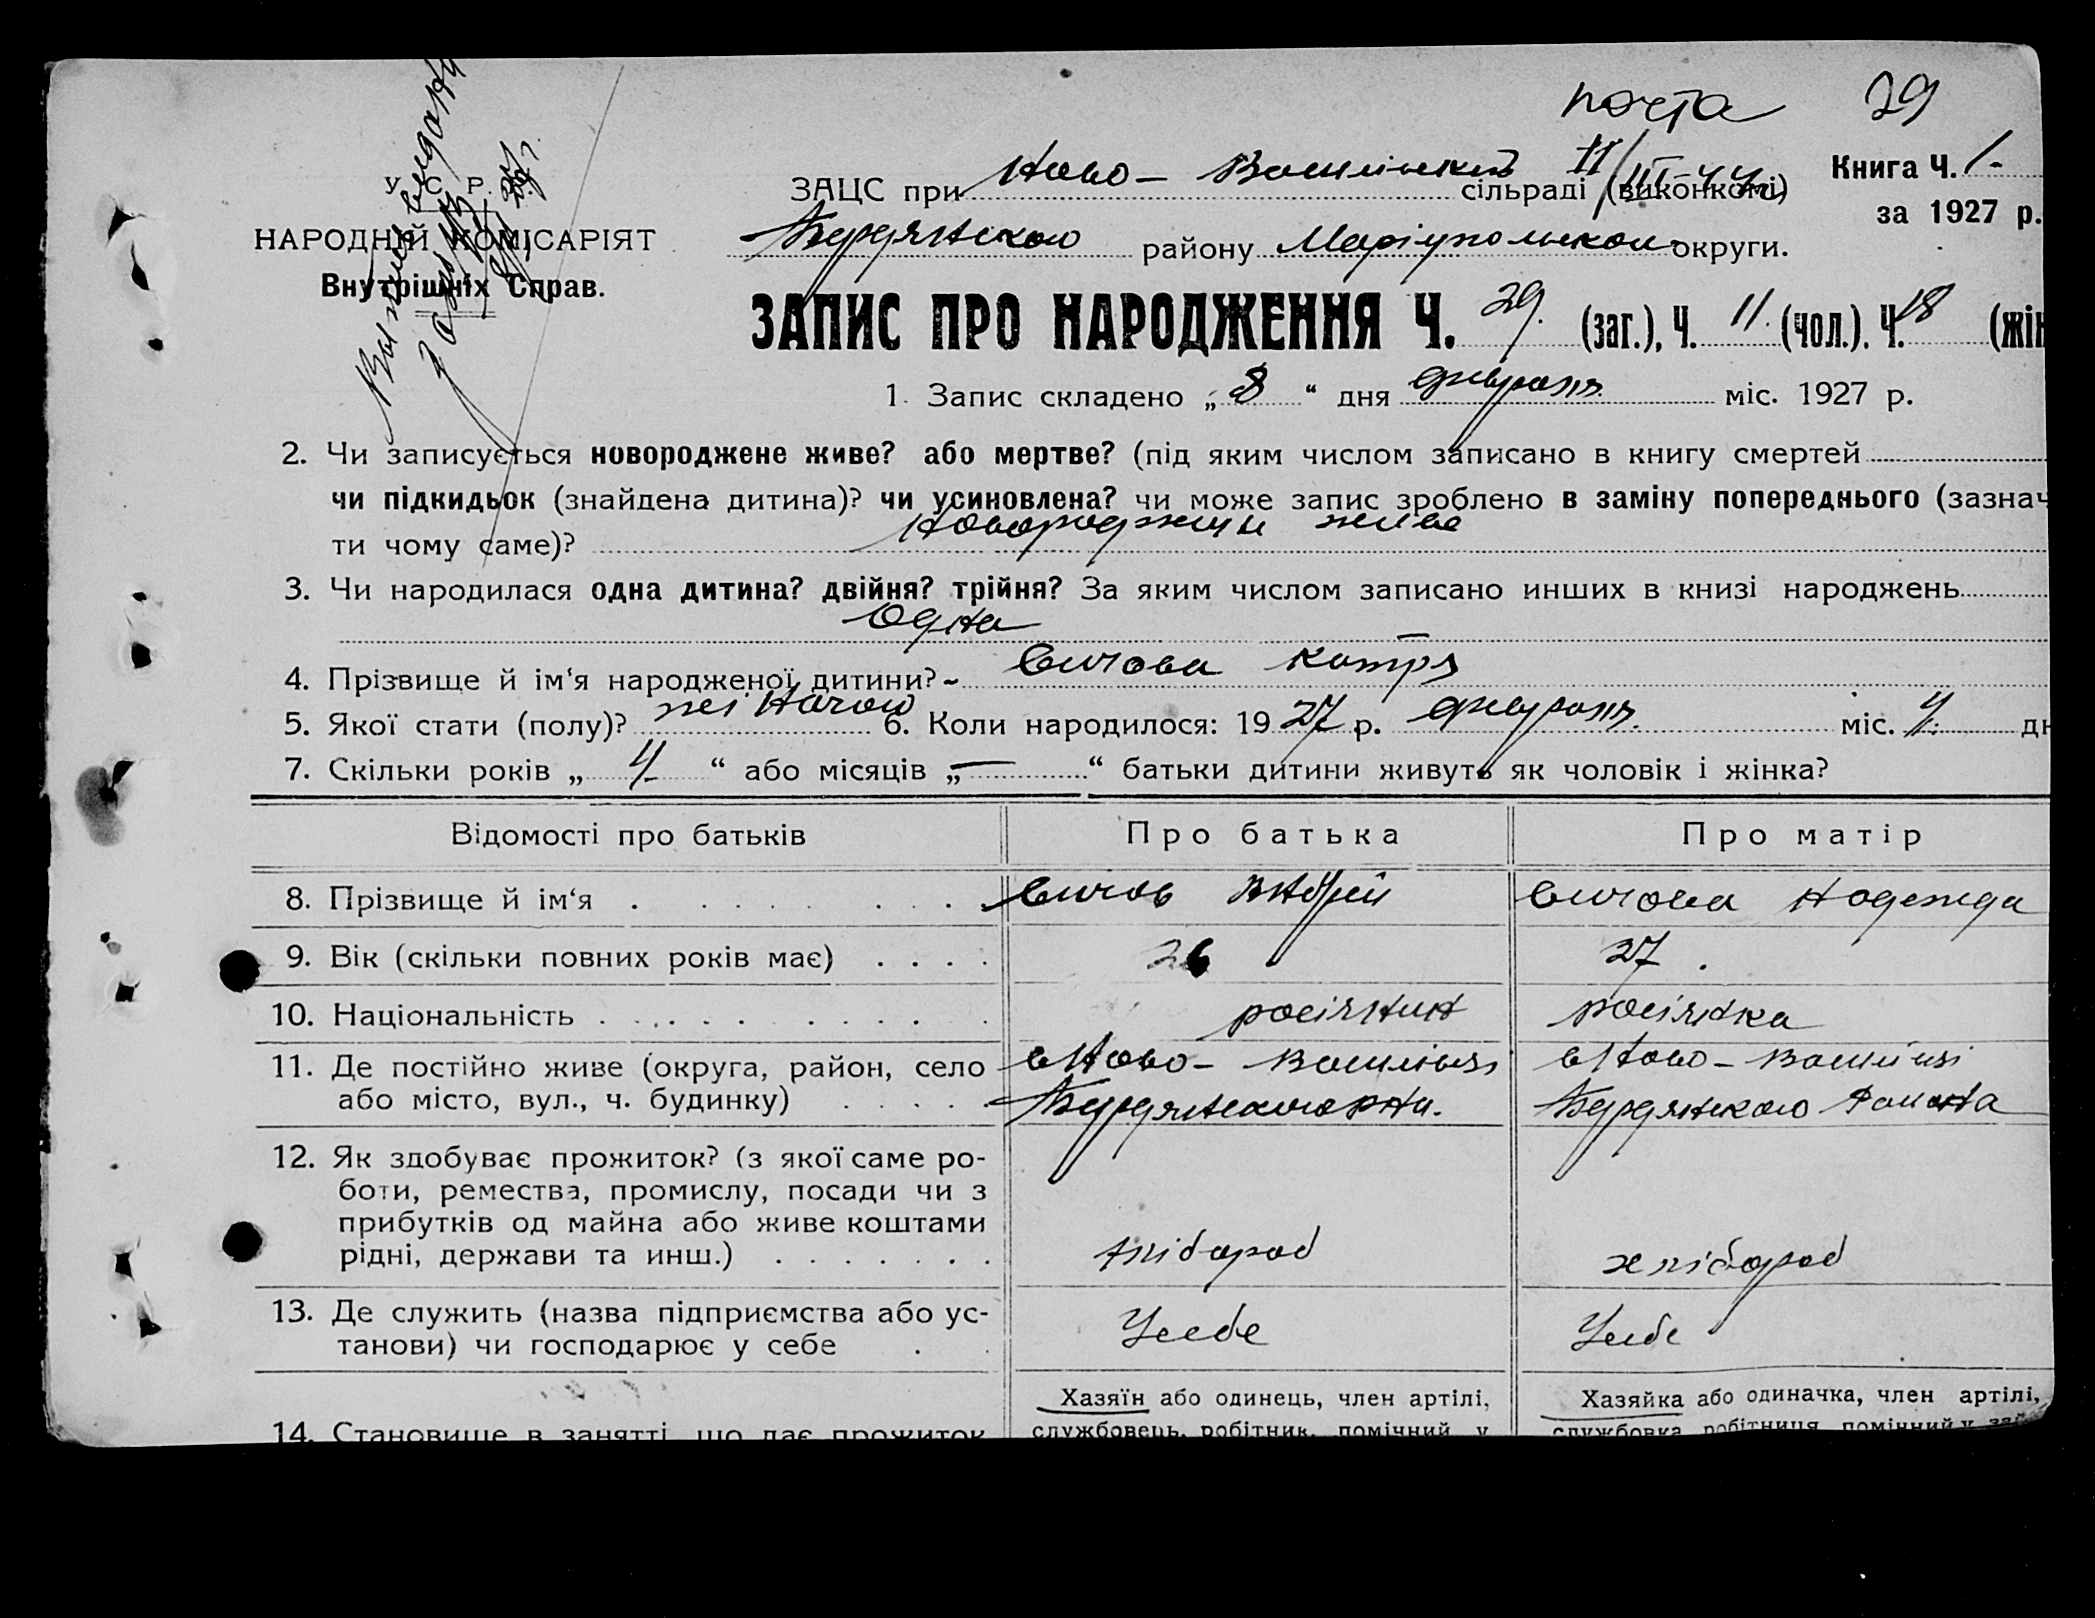 почта 29
ЗАЦС при Ново-Василівській сільраді (виконкомі) Книга Ч. 1-
за 1927 р.
У. С. Р. Р.
НАРОДНІЙ КОМІСАРІЯТ
Внутрішніх Справ.
Бердянського району Маріупольської округи.
ЗАПИС ПРО НАРОДЖЕННЯ Ч. 29. (заг.), Ч. 11. (чол.). Ч. 18 (жін
1. Запис складено „ 8 “ дня февраля міс. 1927 р.
2. Чи записується новороджене живе? або мертве? (під яким числом записано в книгу смертей
чи підкидьок (знайдена дитина)? чи усиновлена? чи може запис зроблено в заміну попереднього (зазнач
ти чому саме)? живе
3. Чи народилася одна дитина? двійня? трійня? За яким числом записано инших в книзі народжень
Одна
4. Прізвище й ім‘я народженої дитини? Катря
5. Якої стати (полу)? жіночої 6. Коли народилося: 1927 р. февраля міс. 4. дн
7. Скільки років „ 4 “ або місяців „ — “ батьки дитини живуть як чоловік і жінка?
Відомості про батьків Про батька Про матір
8. Прізвище й ім‘я Андрій Надежда
9. Вік (скільки повних років має) 26 27.
10. Національність росіянин росіянка
11. Де постійно живе (округа, район, село в Ново-Василівці в Ново-Василівці
або місто, вул., ч. будинку) Бердянського рна. Бердянського района
12. Як здобуває прожиток? (з якої саме ро-
боти, ремества, промислу, посади чи з
прибутків од майна або живе коштами
рідні, держави та инш.) хлібороб хлібороб
13. Де служить (назва підприємства або ус-
танови) чи господарює у себе У себе У себе
Хазяїн або одинець, член артілі, Хазяйка або одиначка, член артілі,
14. Становище в занятті, що дає прожиток службовець, робітник, помічний у службовка робітниця помічний у